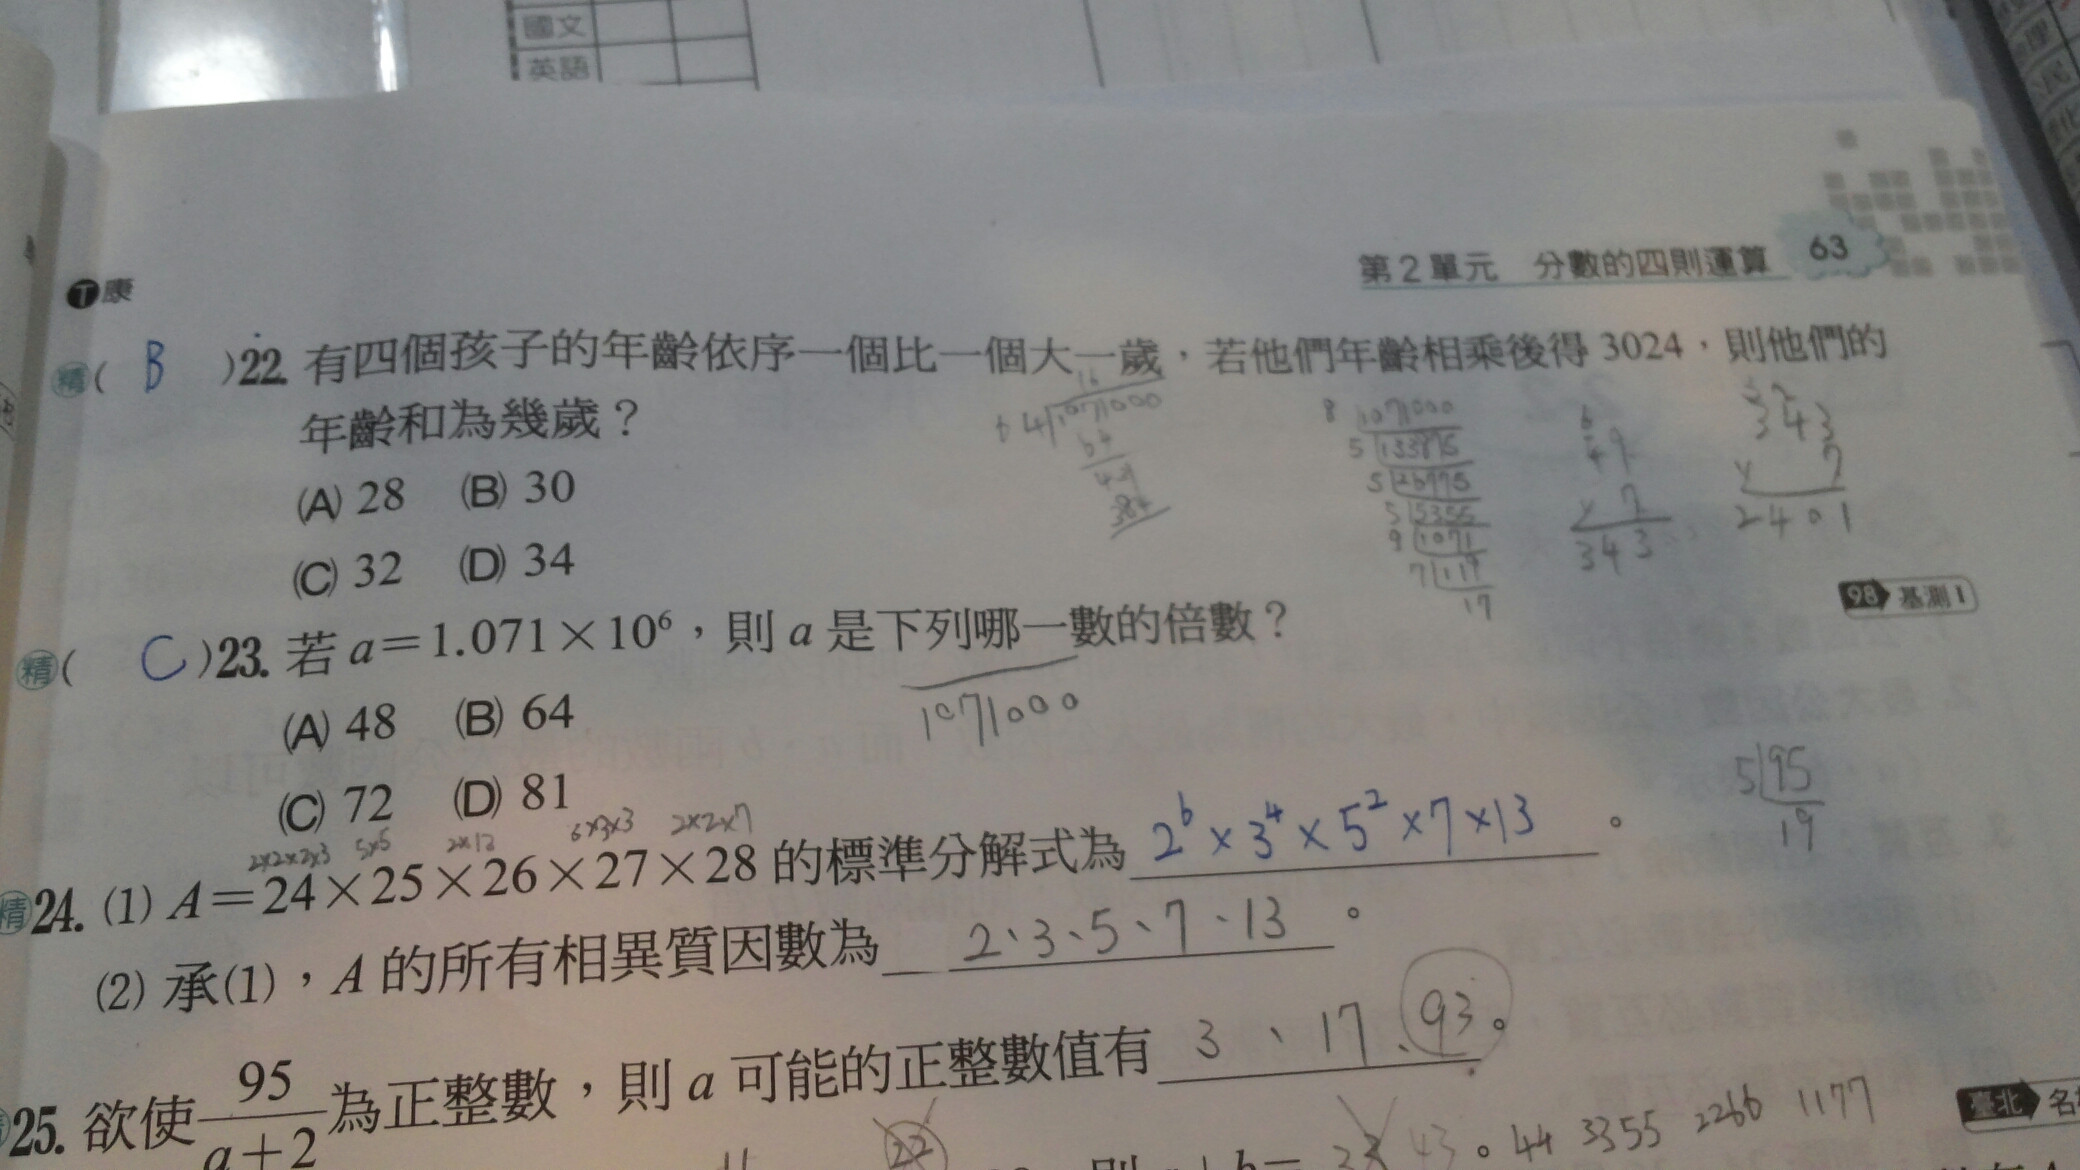 國文
英語
第2單元 分數的四則運算 63
T康
精( B )22. 有四個孩子的年齡依序一個比一個大一歲，若他們年齡相乘後得 3024，則他們的
年齡和為幾歲？
(A) 28 (B) 30
(C) 32 (D) 34
16
64 1071000
64
384
8 1071000
5 133875
5 26775
5 5355
9 1071
7 119
17
6
49
× 7
343
32
343
× 7
2401
98 基測1
精( C )23. 若 a＝1.071×10⁶，則 a 是下列哪一數的倍數？
1071000
(A) 48 (B) 64
(C) 72 (D) 81
5 95
19
2×2×2×3 5×5 2×13 6×3×3 2×2×7
精24. (1) A＝24×25×26×27×28 的標準分解式為 2⁶×3⁴×5²×7×13 。
(2) 承(1)，A 的所有相異質因數為 2、3、5、7、13 。
25. 欲使 95/a＋2 為正整數，則 a 可能的正整數值有 3、17、93。
臺北
22
43。44 3355 2266 1177